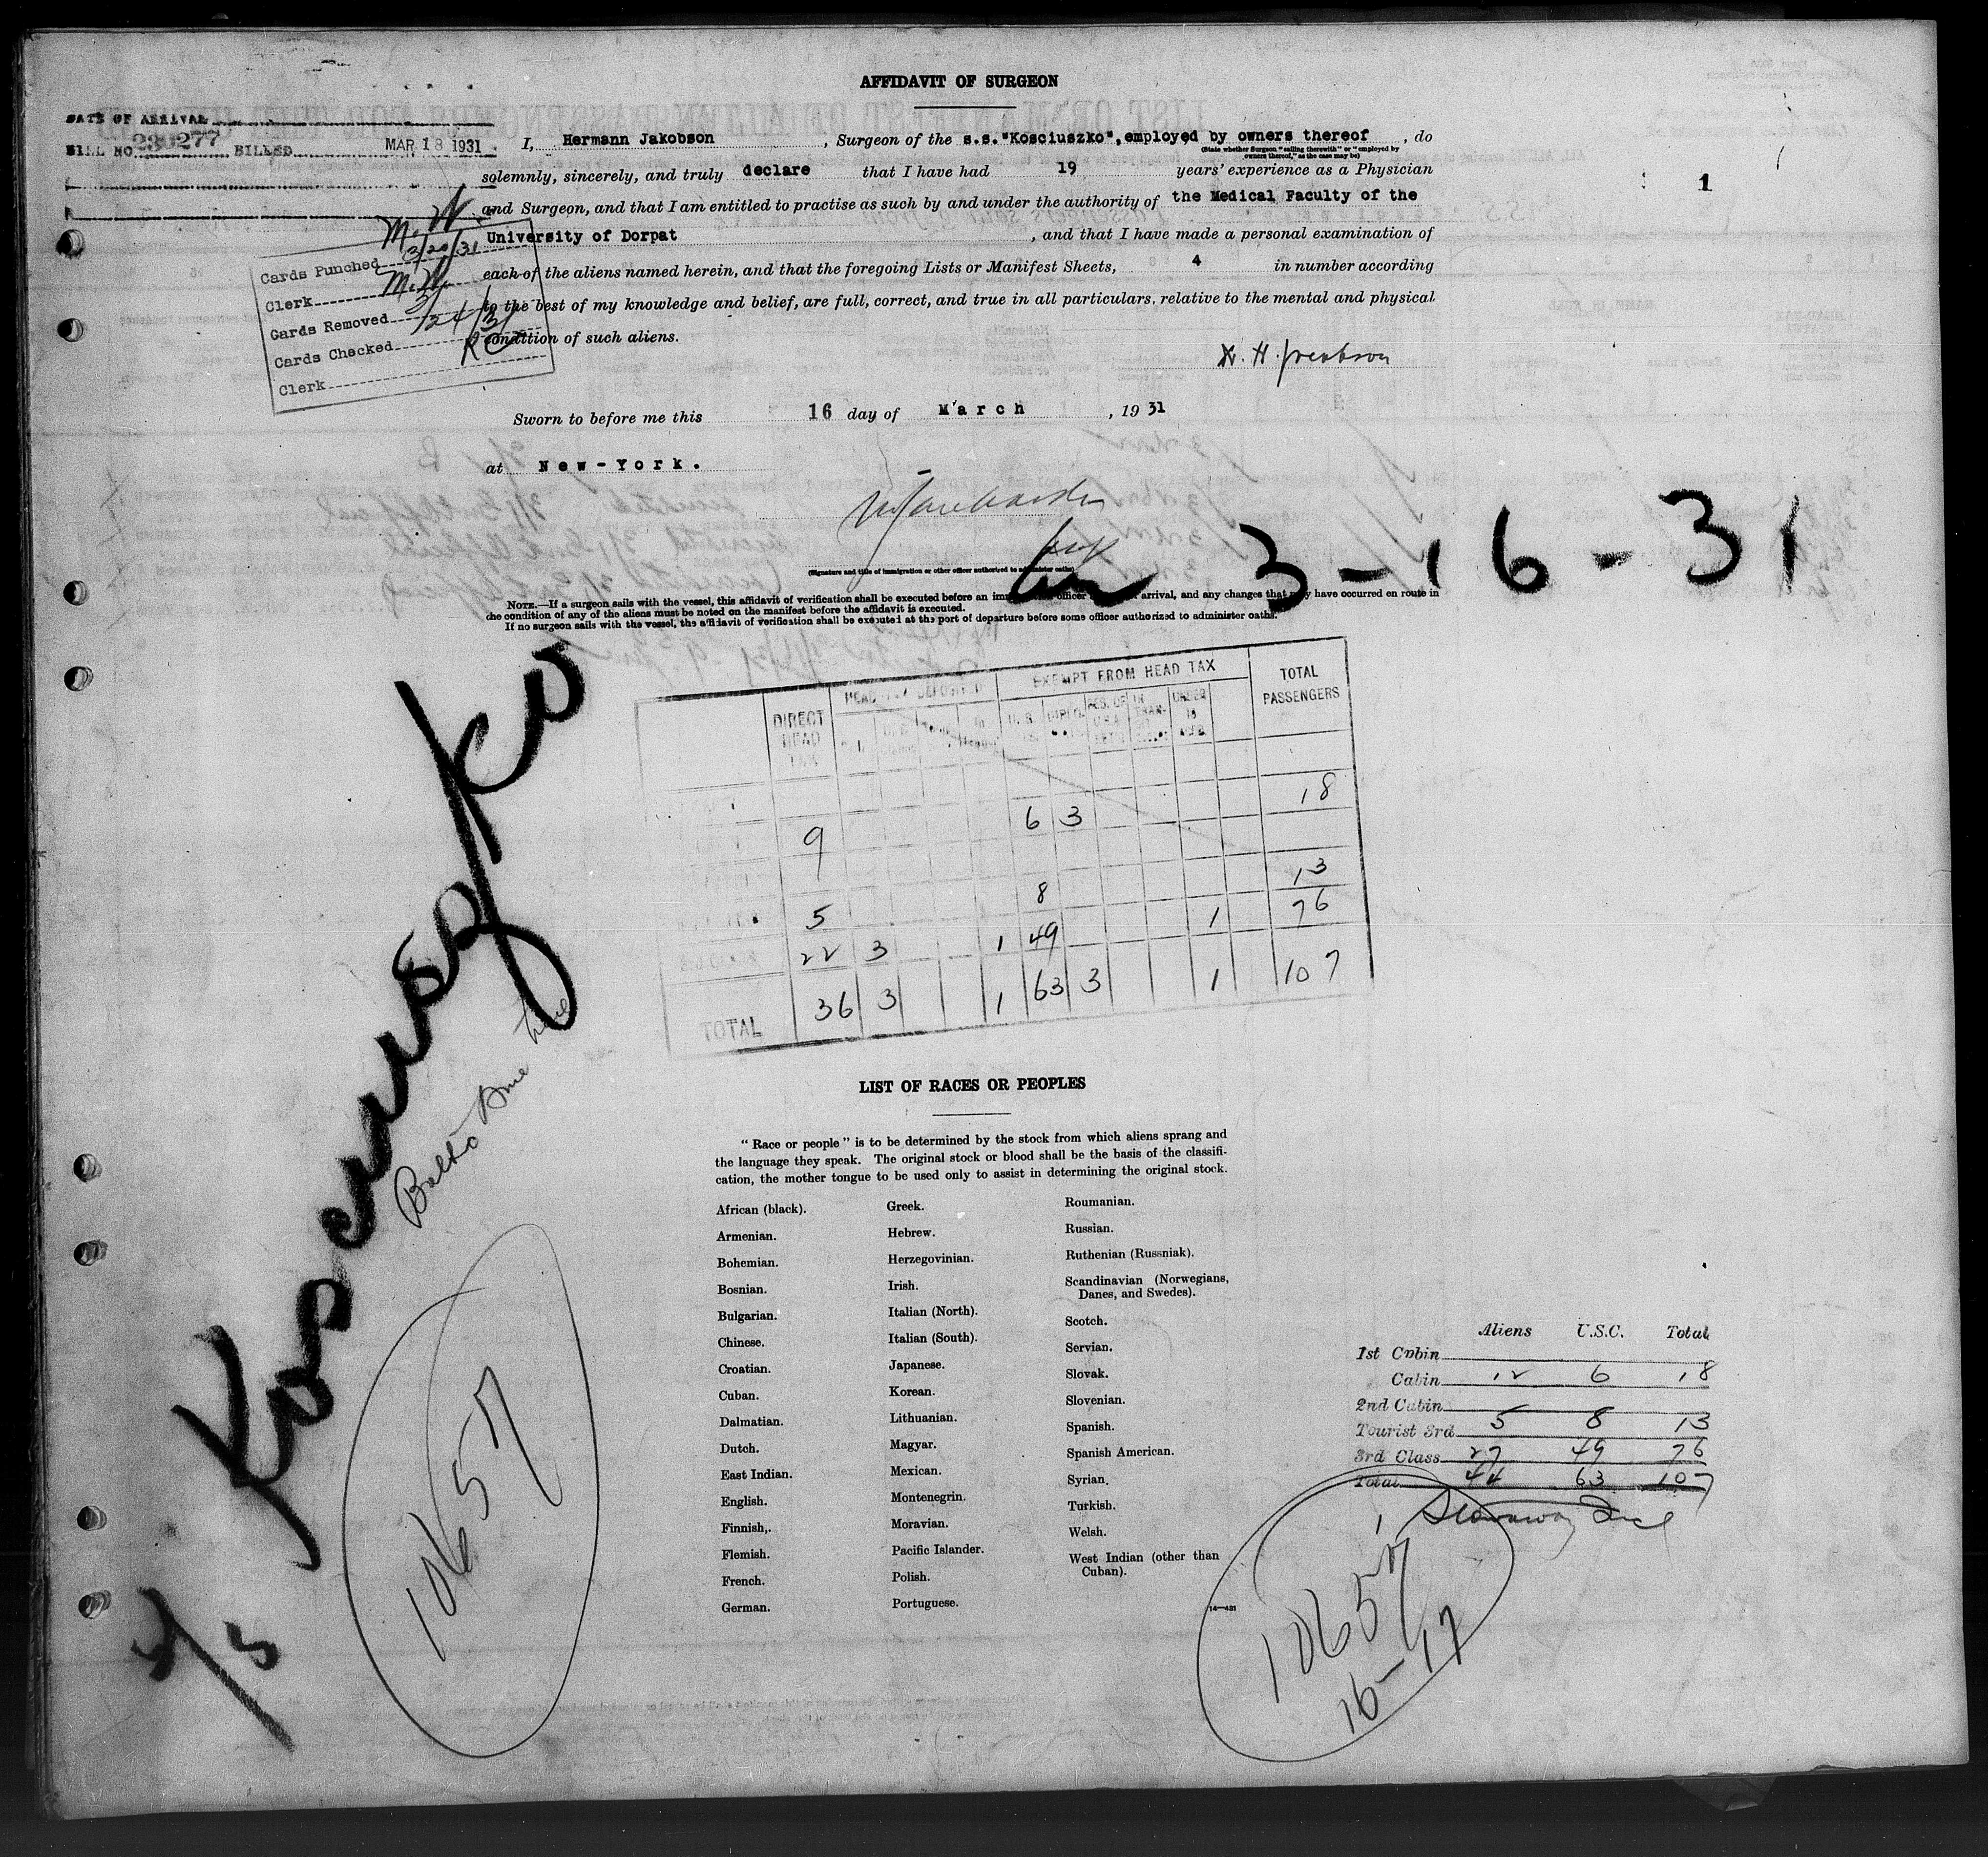 AFFIDAVIT OF SURGEON
DATE OF ARRIVAL
BILL NO 230277 BILLED MAR 18 1931
1
I, Hermann Jakobson, Surgeon of the s.s."Kosciuszko",employed by owners thereof, do
(State whether Surgeon "sailing therewith" or "employed by
owners thereof," as the case may be)
solemnly, sincerely, and truly declare that I have had 19 years' experience as a Physician
and Surgeon, and that I am entitled to practise as such by and under the authority of the Medical Faculty of the
University of Dorpat, and that I have made a personal examination of
each of the aliens named herein, and that the foregoing Lists or Manifest Sheets, 4 in number according
to the best of my knowledge and belief, are full, correct, and true in all particulars, relative to the mental and physical
condition of such aliens.
M.W.
Cards Punched 3/20/31
Clerk M.W.
Cards Removed 3/24/31
Cards Checked
Clerk
Sworn to before me this 16 day of March, 19 31
at New-York.
3-16-31
(Signature and title of immigration or other officer authorized to administer oaths)
NOTE.—If a surgeon sails with the vessel, this affidavit of verification shall be executed before an officer arrival, and any changes that may have occurred en route in
the condition of any of the aliens must be noted on the manifest before the affidavit is executed.
If no surgeon sails with the vessel, the affidavit of verification shall be executed at the port of departure before some officer authorized to administer oaths.
Kosciuszko
DIRECT HEAD TAX
HEAD TAX DEPOSITED
EXEMPT FROM HEAD TAX
TOTAL PASSENGERS
9 6 3 18
5 8 13
22 3 1 49 1 76
TOTAL 36 3 1 63 3 1 107
LIST OF RACES OR PEOPLES
"Race or people" is to be determined by the stock from which aliens sprang and
the language they speak. The original stock or blood shall be the basis of the classifi-
cation, the mother tongue to be used only to assist in determining the original stock.
African (black).
Armenian.
Bohemian.
Bosnian.
Bulgarian.
Chinese.
Croatian.
Cuban.
Dalmatian.
Dutch.
East Indian.
English.
Finnish,.
Flemish.
French.
German.
Greek.
Hebrew.
Herzegovinian.
Irish.
Italian (North).
Italian (South).
Japanese.
Korean.
Lithuanian.
Magyar.
Mexican.
Montenegrin.
Moravian.
Pacific Islander.
Polish.
Portuguese.
Roumanian.
Russian.
Ruthenian (Russniak).
Scandinavian (Norwegians,
Danes, and Swedes).
Scotch.
Servian.
Slovak.
Slovenian.
Spanish.
Spanish American.
Syrian.
Turkish.
Welsh.
West Indian (other than
Cuban).
14—481
Aliens U.S.C. Total
1st Cabin
Cabin 12 6 18
2nd Cabin
Tourist 3rd 5 8 13
3rd Class 27 49 76
Total 44 63 107
1 Stowaway Incl
10657
10657
16-17